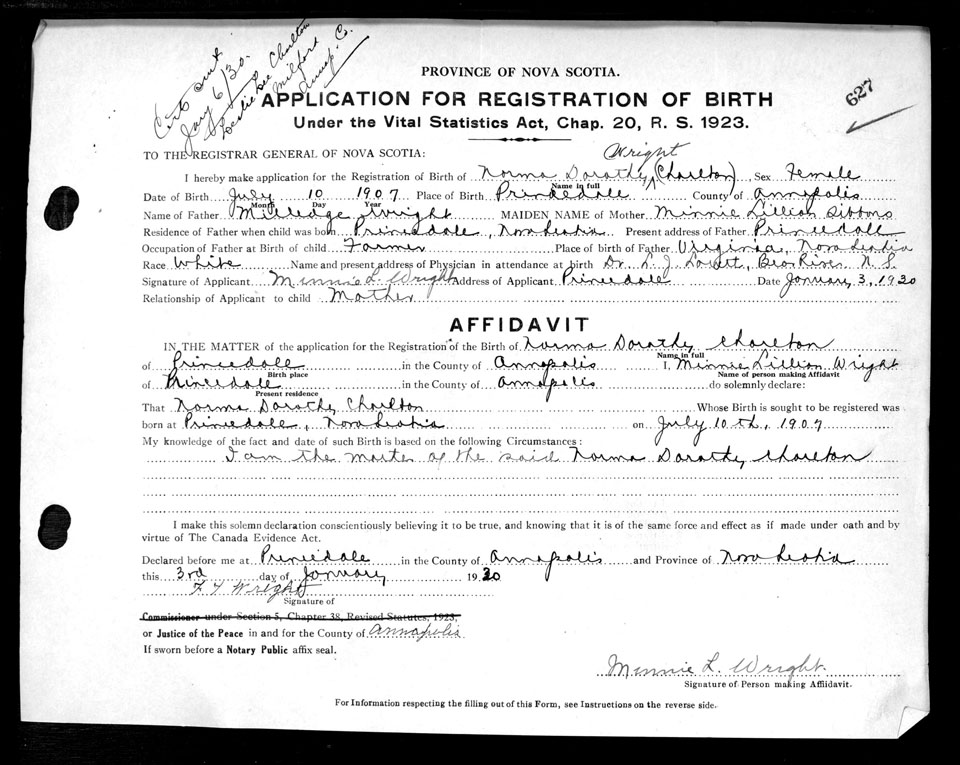 Cert sent
Jany 6/30.
Leslie Lee Charlton
Milford
Annap. Co.
PROVINCE OF NOVA SCOTIA.
627
APPLICATION FOR REGISTRATION OF BIRTH
Under the Vital Statistics Act, Chap. 20, R. S. 1923.
TO THE REGISTRAR GENERAL OF NOVA SCOTIA:
Wright
I hereby make application for the Registration of Birth of Norma Dorathy (Charlton) Sex Female
Name in full
Date of Birth July 10 1907 Place of Birth Princedale County of Annapolis
Month Day Year
Name of Father Milledge Wright MAIDEN NAME of Mother Minnie Lillian Sibbons
Residence of Father when child was born Princedale, Nova Scotia Present address of Father Princedale
Occupation of Father at Birth of child Farmer Place of birth of Father Virginia, Nova Scotia
Race White Name and present address of Physician in attendance at birth Dr. L. J. Lovett, Bear River N. S.
Signature of Applicant Minnie L. Wright Address of Applicant Princedale Date January 3, 1930
Relationship of Applicant to child Mother
AFFIDAVIT
IN THE MATTER of the application for the Registration of the Birth of Norma Dorathy Charlton
Name in full
of Princedale in the County of Annapolis I, Minnie Lillian Wright
Birth place Name of person making Affidavit
of Princedale in the County of Annapolis do solemnly declare:
Present residence
That Norma Dorathy Charlton Whose Birth is sought to be registered was
born at Princedale, Nova Scotia on July 10th, 1907
My knowledge of the fact and date of such Birth is based on the following Circumstances:
I am the of the said Norma Dorathy Charlton
I make this solemn declaration conscientiously believing it to be true, and knowing that it is of the same force and effect as if made under oath and by
virtue of The Canada Evidence Act.
Declared before me at Princedale in the County of Annapolis and Province of Nova Scotia
this 3rd day of January 1930
F. Y Wright
Signature of
Commissioner under Section 5, Chapter 38, Revised Statutes, 1923,
or Justice of the Peace in and for the County of Annapolis
If sworn before a Notary Public affix seal.
Minnie L. Wright.
Signature of Person making Affidavit.
For Information respecting the filling out of this Form, see Instructions on the reverse side.